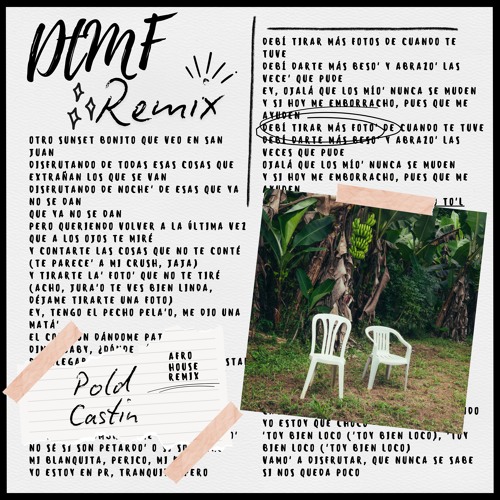 DtMF
Remix
OTRO SUNSET BONITO QUE VEO EN SAN
JUAN
DISFRUTANDO DE TODAS ESAS COSAS QUE
EXTRAÑAN LOS QUE SE VAN
DISFRUTANDO DE NOCHE' DE ESAS QUE YA
NO SE DAN
QUE YA NO SE DAN
PERO QUERIENDO VOLVER A LA ÚLTIMA VEZ
QUE A LOS OJOS TE MIRÉ
Y CONTARTE LAS COSAS QUE NO TE CONTÉ
(TE PARECE' A MI CRUSH, JAJA)
Y TIRARTE LA' FOTO' QUE NO TE TIRÉ
(ACHO, JURA'O TE VES BIEN LINDA,
DÉJAME TIRARTE UNA FOTO)
EY, TENGO EL PECHO PELA'O, ME DIO UNA
MATÁ'
EL DÁNDOME
AFRO
HOUSE
REMIX
Pold
Castin
NO SÉ SI SON PETARDO' O SI
MI BLANQUITA, PERICO, MI
YO ESTOY EN PR, TRANQUI
DEBÍ TIRAR MÁS FOTOS DE CUANDO TE
TUVE
DEBÍ DARTE MÁS BESO' Y ABRAZO' LAS
VECE' QUE PUDE
EY, OJALÁ QUE LOS MÍO' NUNCA SE MUDEN
Y SI HOY ME EMBORRACHO, PUES QUE ME
AYUDEN
DEBÍ TIRAR MÁS FOTO' DE CUANDO TE TUVE
DEBÍ DARTE MÁS BESO' Y ABRAZO' LAS
VECES QUE PUDE
OJALÁ QUE LOS MÍO' NUNCA SE MUDEN
Y SI HOY ME EMBORRACHO, PUES QUE ME
AYUDEN
TO'L
YO ESTOY QUE CHOCO
'TOY BIEN LOCO ('TOY BIEN LOCO), 'TOY
BIEN LOCO ('TOY BIEN LOCO)
VAMO' A DISFRUTAR, QUE NUNCA SE SABE
SI NOS QUEDA POCO